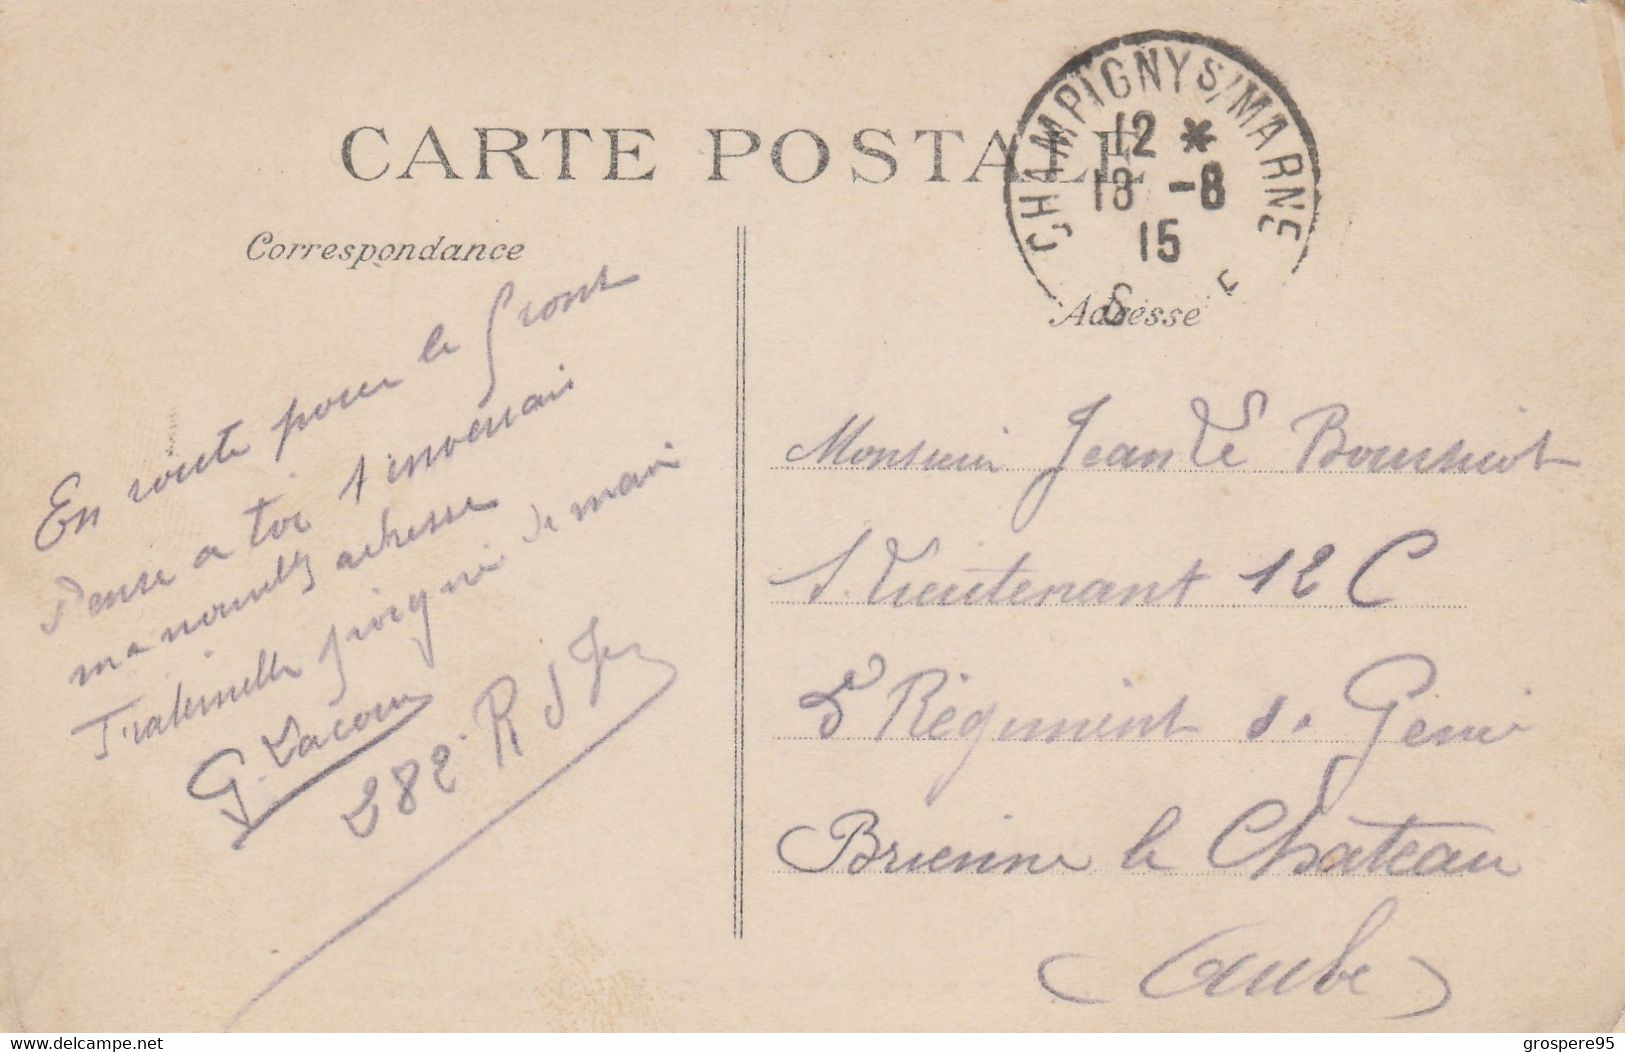 CARTE POSTALE
CHAMPIGNY S/MARNE
12 *
18 -8
15
S E
Correspondance
Adresse
En route pour le front
Pense a toi t'enverrai
ma nouvelle adresse
Fraternelle poignée de main
G. Lacour
282 R d
Monsieur Jean
S. Lieutenant 12 C
5e Régiment de Genie
Brienne le Château
(Aube)
Delcampe.net
grospere95